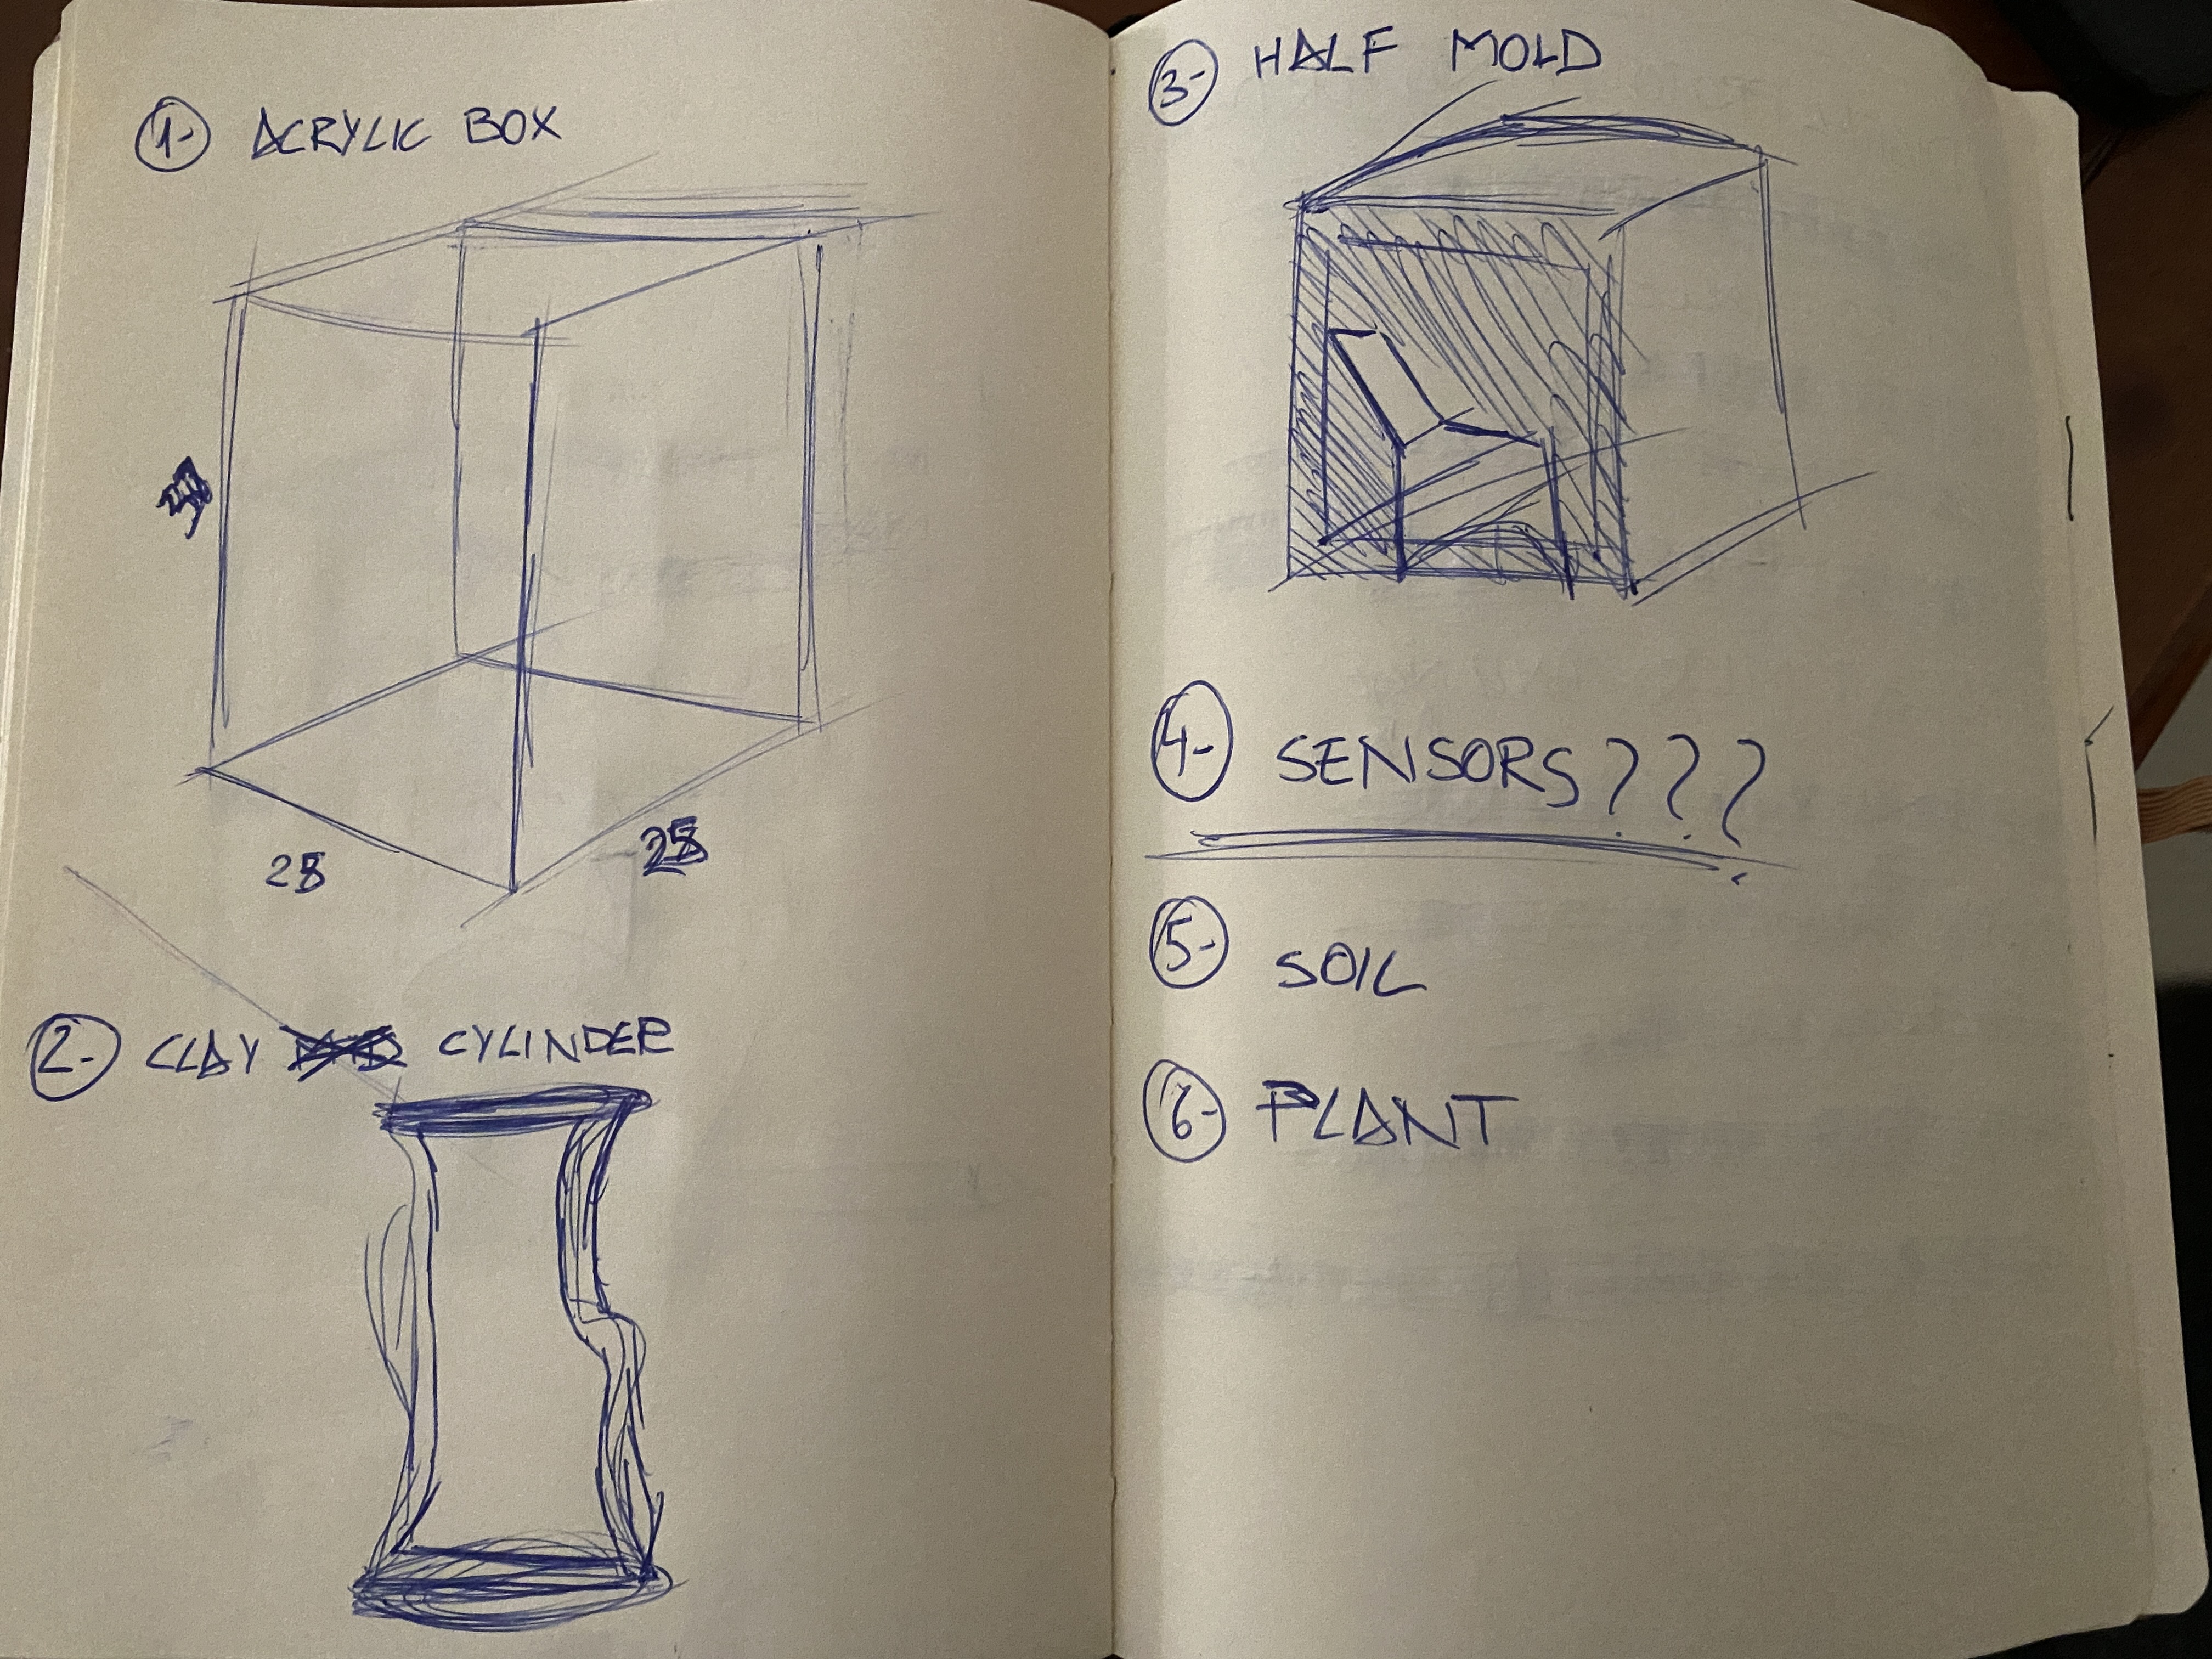 1- ACRYLIC BOX
28
2- CLAY CYLINDER
3- HALF MOLD
4- SENSORS???
5- SOIL
6- PLANT